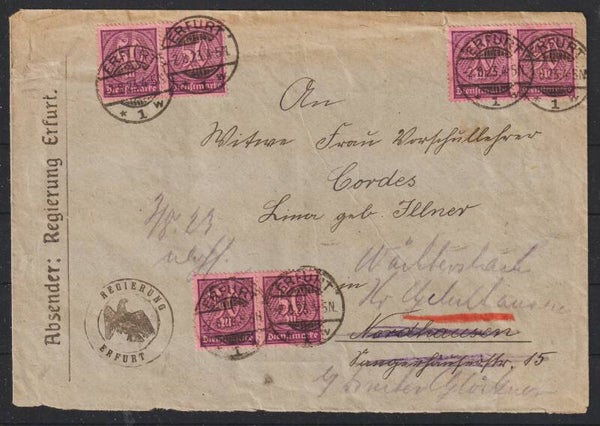 Absender: Regierung Erfurt.
ERFURT
* 1 w
50
Dienstmarke
ERFURT
1 w
Dienstmarke
An
Witwe Frau Vorschullehrer
Cordes
Lina geb. Illner
in
Wächtersbach
Kr Gelnhausen
Nordhausen
Sangerhäuserstr. 15
REGIERUNG
ERFURT
ERFURT
1
50
Dienstmarke